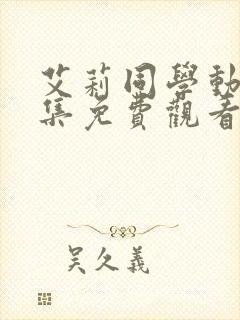 艾莉同學動
集免費觀看
吴久義